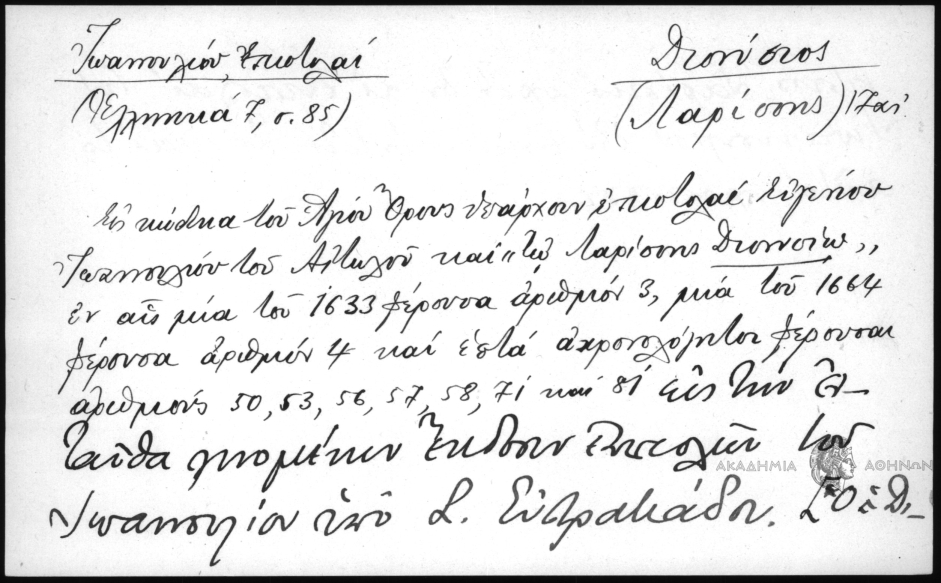 Ἰωαννουλίου Ἐπιστολαί
(Ἑλληνικά 7, σ. 85)
Διονύσιος
(Λαρίσσης) 17 αἰ.
Εἰς κώδικα τοῦ Ἁγίου Ὄρους ὑπάρχουν ἐπιστολαί Εὐγενίου
Ἰωαννουλίου τοῦ Αἰτωλοῦ καί "τῷ Λαρίσσης Διονυσίῳ,,
ἐν αἷς μία τοῦ 1633 φέρουσα ἀριθμόν 3, μία τοῦ 1664
φέρουσα ἀριθμόν 4 καί ἑπτά ἀχρονολόγητοι φέρουσαι
ἀριθμούς 50, 53, 56, 57, 58, 71 καί 81 εἰς τήν ἐν-
ταῦθα γινομένην ἔκδοσιν ἐπιστολῶν τοῦ
Ἰωαννουλίου ὑπό Σ. Εὐστρατιάδου. [Ὁ ἐ Δι_
ΑΚΑΔΗΜΙΑ ΑΘΗΝΩΝ